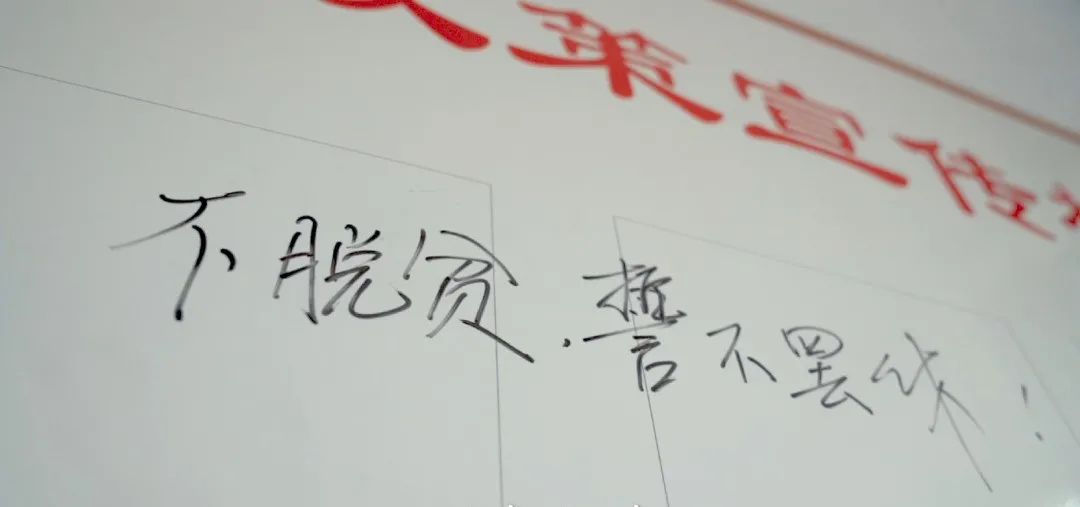 策宣传
不脱贫，誓不罢休！